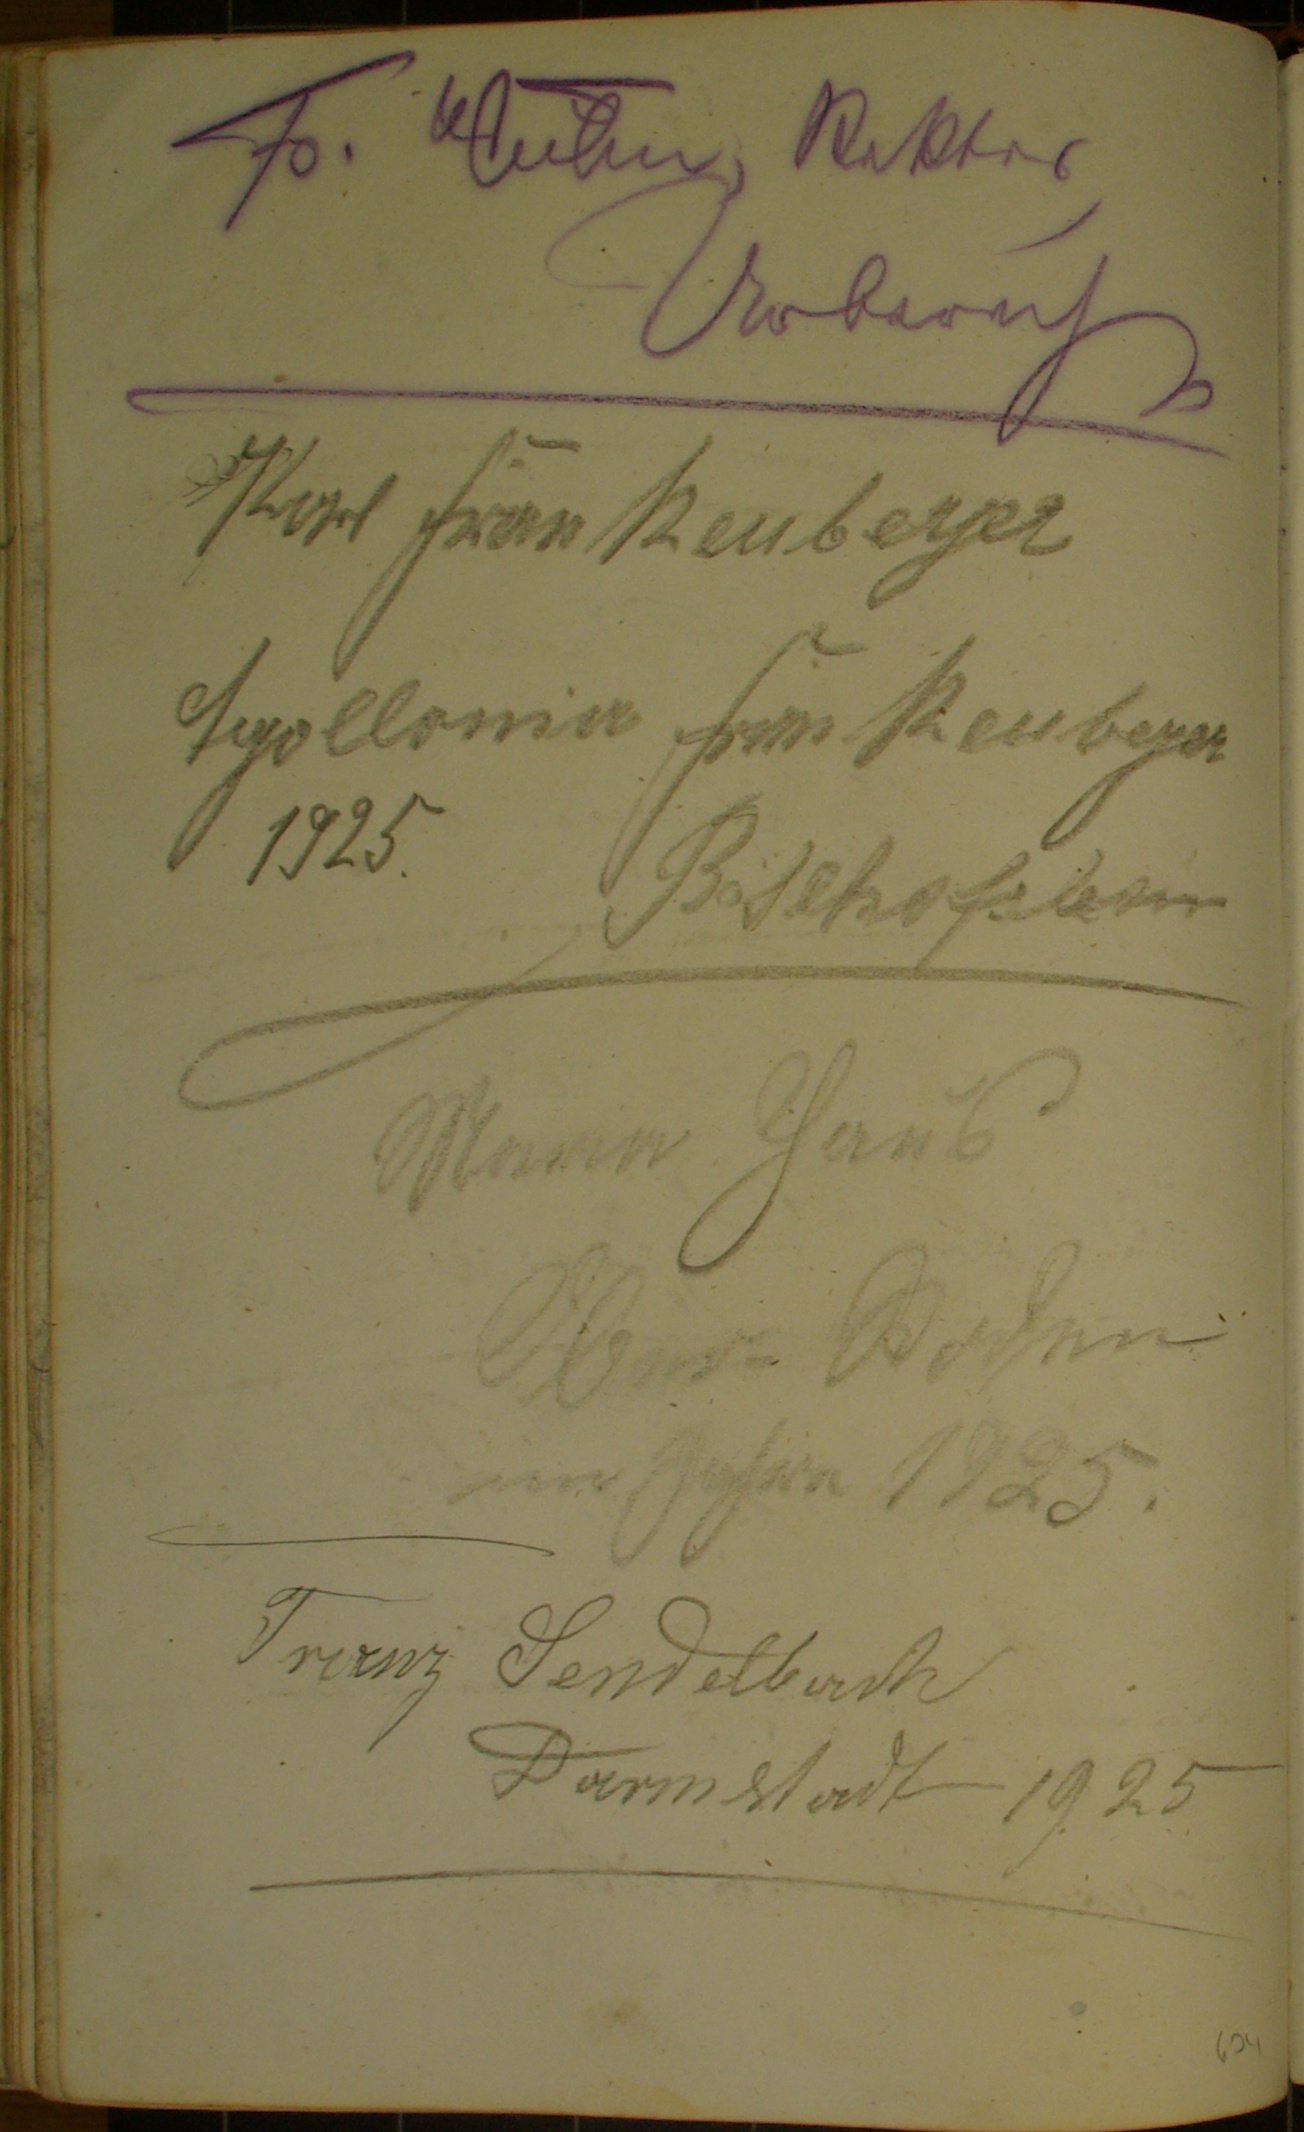 Fr. Rektor
Urberach
Karl Frankenberger
Apollonia Frankenberger
1925.
Bischofsheim
Maria Haus
Ober-Roden
im Jahre 1925.
Franz Sendelbach
Darmstadt 1925
604